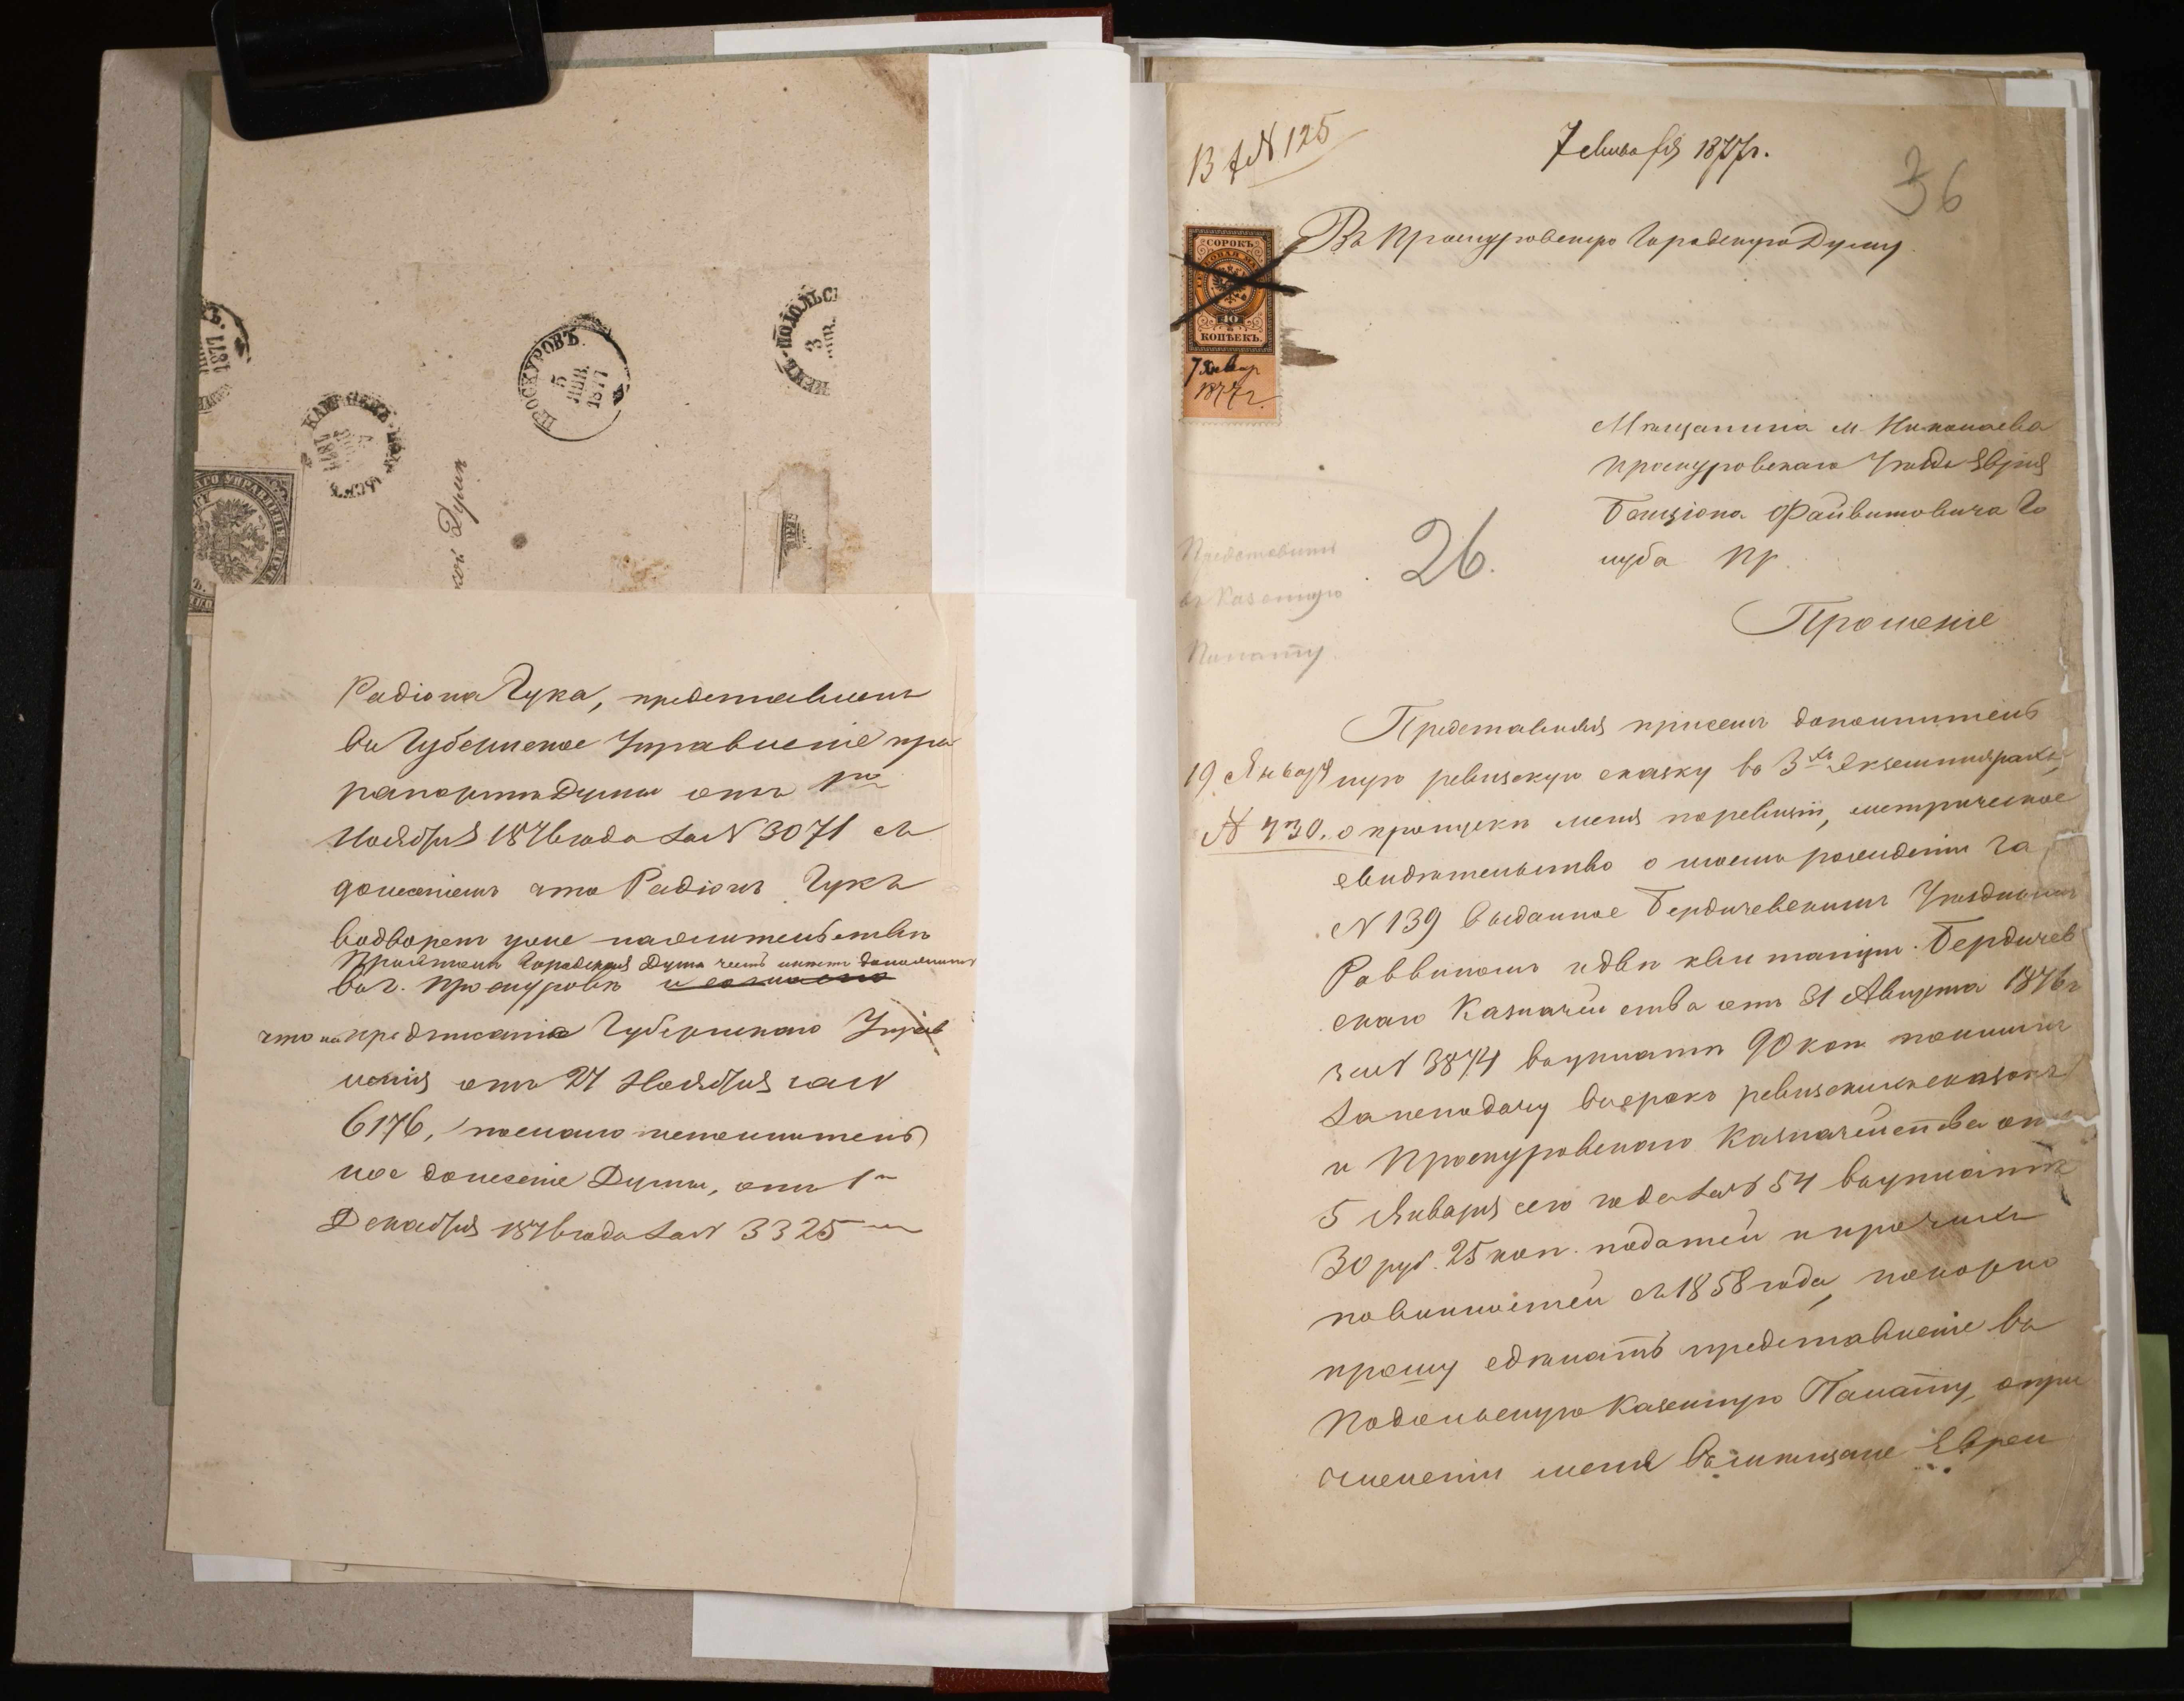 ПРОСКУРОВЪ
5
ЯНВ.
1877
3
ЯНВ.
1877
Радіона Гука, представленъ
въ Губернское Управленіе при
рапортѣ Думы отъ 1го
Ноября 1876 года за N 3071 съ
донесеніемъ что Радіонъ Гукъ
водворенъ уже на жительство
Городская Дума честь имѣетъ
въ г. Проскуровѣ
что на предписаніе Губернскаго Управ
ленія отъ 27 Ноября за N
6176, послано исполнитель
ное донесеніе Думы, отъ 1го
Декабря 1876 года за N 3325
В N 125
7 Января 1877 г.
36
Въ Проскуровскую Городскую Думу
СОРОКЪ
40
КОПѢЕКЪ.
7 Январ
1877 г.
Мѣщанина м. Николаева
Проскуровскаго Уѣзда Еврея
Бенціона Файвишовича Го
луба Пр.
26.
Представить
въ Казенную
Палату
Прошеніе
Представляя присемъ дополнитель
19 Января
N 730.
ную ревизскую сказку въ 3хъ Экземплярахъ,
о пропускѣ меня по ревизіи, метрическое
свидѣтельство о моемъ рожденіи за
N 139 выданное Бердичевскимъ Уѣзднымъ
Раввиномъ и двѣ квитанціи. Бердичев
скаго Казначейства отъ 31 Августа 1876 г
за N 3874 въ уплатѣ 90 коп пошлинъ
за неподачу въ срокъ ревизскихъ сказокъ
и Проскуровскаго Казначейства отъ
5 Января сего года за N 54 въ уплатѣ
30 руб. 25 коп. податей и прочихъ
повинностей съ 1858 года, покорно
прошу сдѣлать представленіе въ
Подольскую Казенную Палату, о при
численіи меня въ мѣщане Евреи